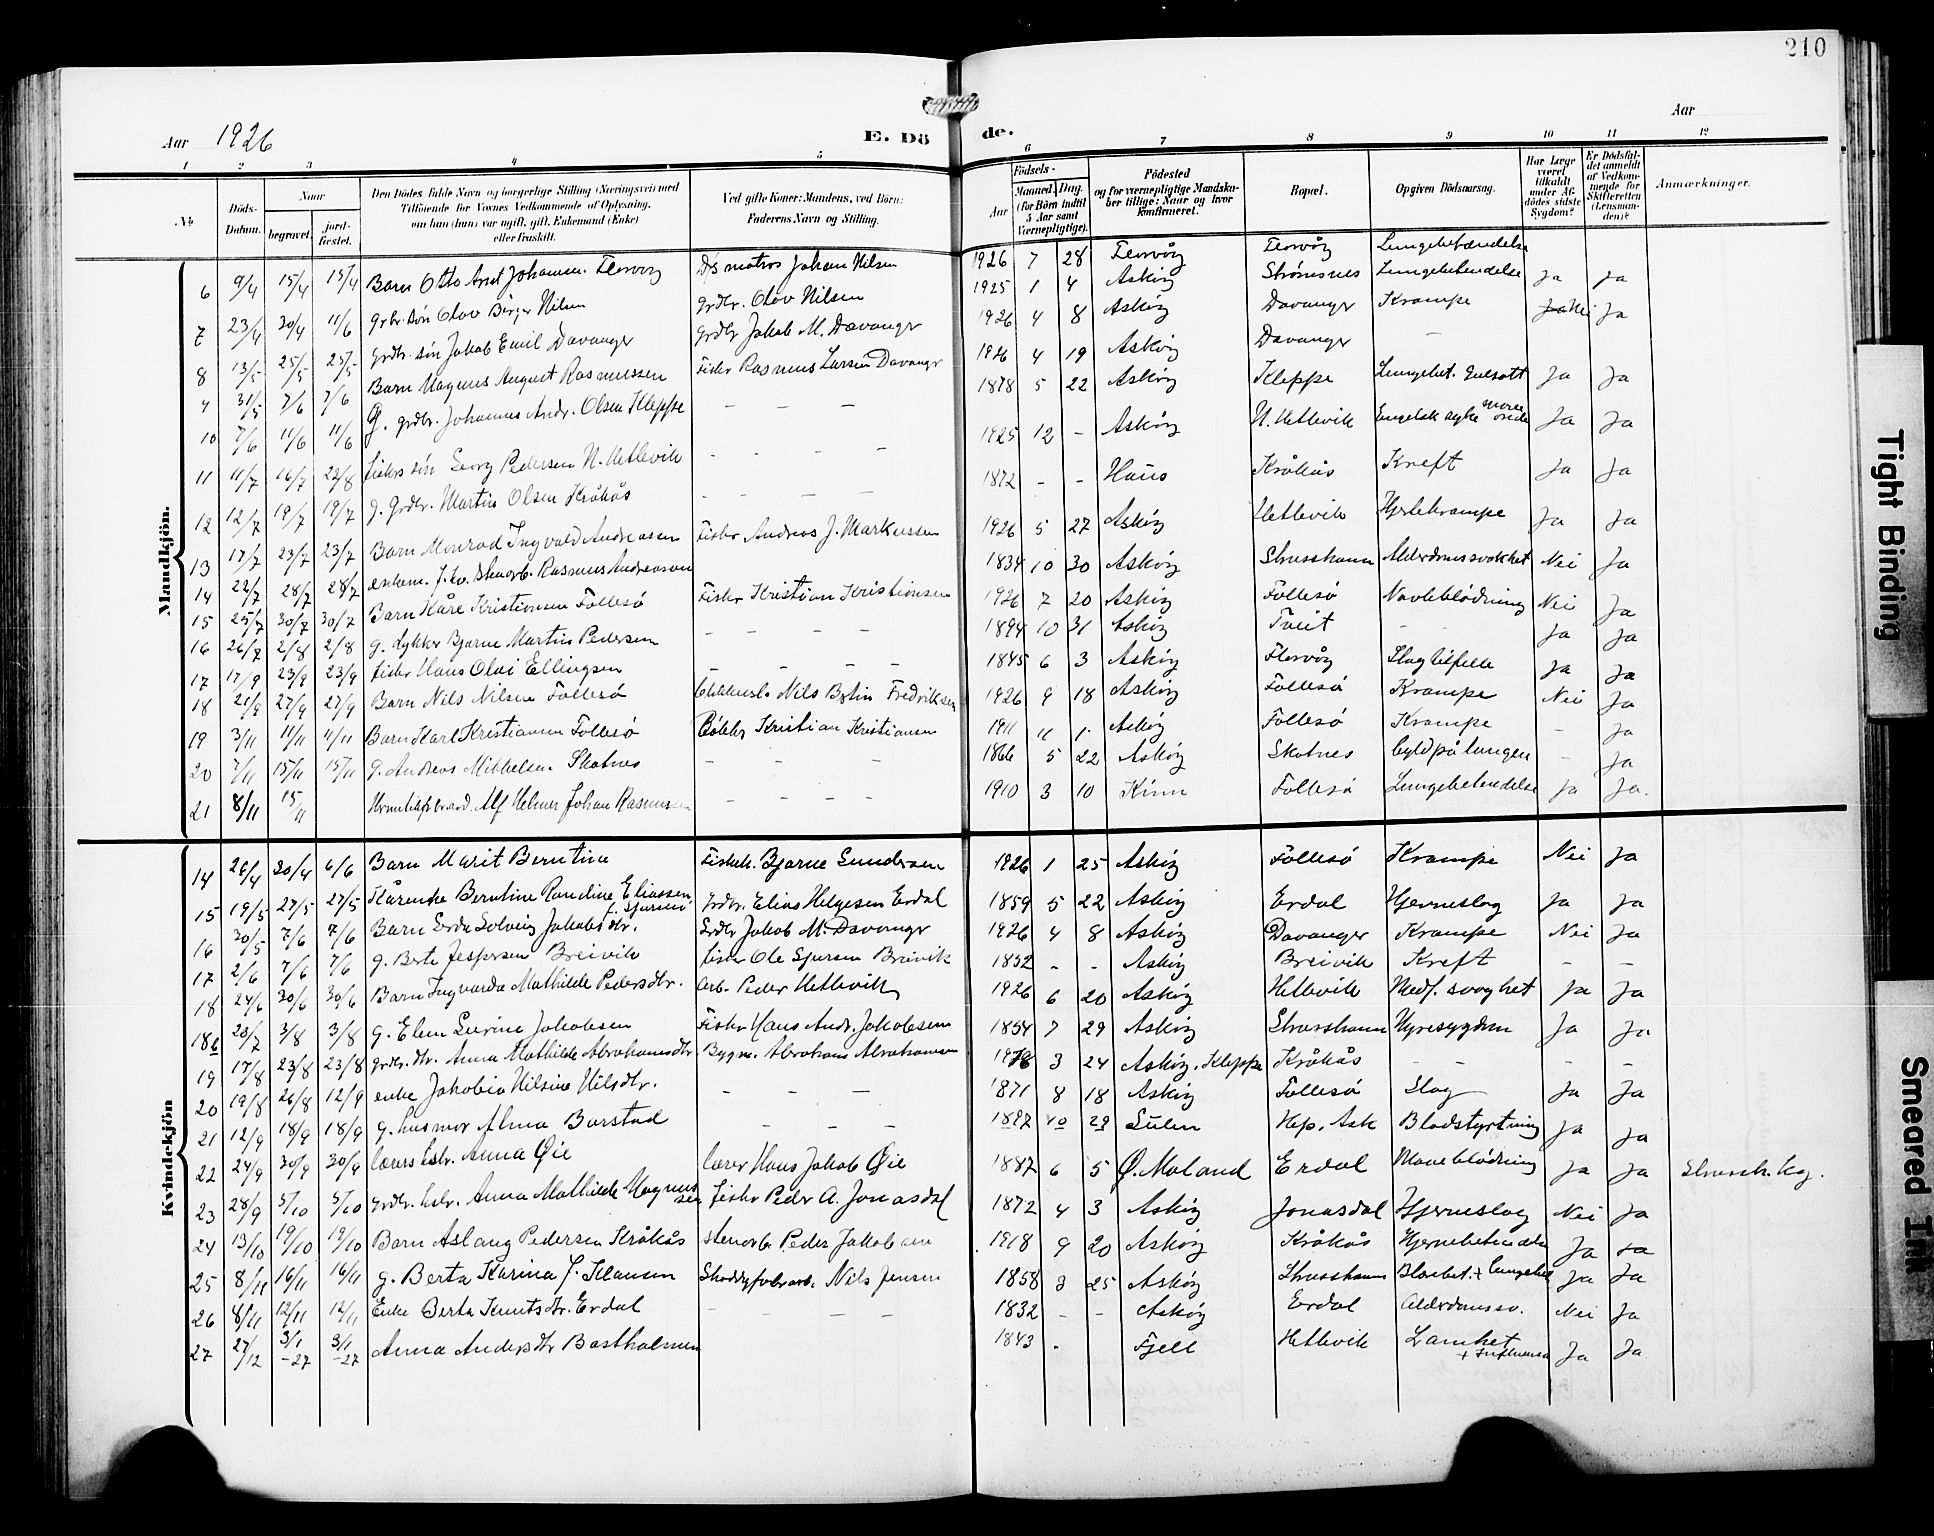 210
Aar 1926
E. Dö
de.
Aar
1 2 3 4 5 6 7 8 9 10 11 12
No.
Döds-Datum.
Naar
begravet.
jord-fæstet.
Den Dödes fulde Navn og borgerlige Stilling (Næringsvei) med
Tilföiende for Voxnes Vedkommende af Oplysning,
om han (hun) var ugift, gift, Enkemand (Enke)
eller fraskilt.
Ved gifte Koner: Mandens, ved Börn:
Faderens Navn og Stilling.
Födsels-
Aar
Maaned. Dag.
(for Börn indtil
5 Aar samt
Værnepligtige).
Födested
og for værnepligtige Mandska-
ber tillige: Naar og hvor
konfirmeret.
Bopæl.
Opgiven Dödsaarsag.
Har Læge
været
tilkaldt
under Af-
dødes sidste
Sygdom?
Er Dödsfal-
det anmeldt
af Vedkom-
mende for
Skifteretten
(Lensman-
den)?
Anmærkninger.
Mandkjön.
6 9/4 15/4 15/4 Barn Otto Arnt Johansen Florvåg Ds matros Johan Nilsen 1926 7 28 Florvåg Florvåg Lungebetændelse
7 23/4 30/4 11/6 grbr. søn Olav Birger Nilsen grdbr. Olav Nilsen 1925 1 4 Askøy Strømsnes Lungebetendelse Ja Ja
8 13/5 25/5 25/5 grdbr. søn Jakob Emil Davanger grdbr Jakob M. Davanger 1926 4 8 Askøy Davanger Krampe Nei Ja
9 31/5 7/6 7/6 Barn Magnus August Rasmussen Fisker Rasmus Larsen Davanger 1926 4 19 Askøy Davanger —
10 7/6 11/6 11/6 g. grdbr. Johannes Andr. Olsen Kleppe — — — 1878 5 22 Askøy Kleppe Lungebet. Gulsott Ja Ja
11 11/7 16/7 22/8 fiskers søn Georg Pedersen N. Hetlevik - - - 1925 12 - Askøy N. Hetlevik Engelsk syke Ja Ja
12 12/7 19/7 19/7 g. Grdbr. Martin Olsen Kråkås - - - - 1872 - - Haus Kråkås Kreft Ja Ja
13 17/7 23/7 23/7 Barn Monrad Ingvald Andreassen Fisker Andreas J. Markussen 1926 5 27 Askøy Hetlevik Hjertekrampe Ja Ja
14 22/7 28/7 28/7 enkem. Rasmus Andreassen 1834 10 30 Askøy Strusshamn Alderdomssvakhet Nei Ja
15 25/7 30/7 30/7 Barn Kåre Kristiansen Follesø Fisker Kristian Kristiansen 1926 7 20 Askøy Follesø Navleblødning Nei Ja
16 26/7 2/8 2/8 g. dykker Bjarne Martin Pedersen - - - - 1894 10 31 Askøy Tveit - - Ja Ja
17 17/9 23/9 23/9 fisker Hans Olai Ellingsen — — — — 1845 6 3 Askøy Florvåg Slagtilfelle Ja Ja
18 21/9 27/9 27/9 Barn Nils Nilsen Follesø Nils Fredriksen 1926 9 18 Askøy Follesø Krampe Nei Ja
19 3/11 11/11 11/11 Barn Karl Kristiansen Follesø Bøkker Kristian Kristiansen 1911 11 1 Askøy Follesø Krampe - Ja
20 7/11 15/11 15/11 g. Andreas Mikkelsen Skatnes - - - - 1866 5 22 Askøy Skotnes byld på lungen - Ja
21 8/11 15/11 Alf Helmer Johan Rasmussen - - - - 1910 3 10 Kinn Follesø Lungebetendelse Ja Ja.
Kvindekjön
14 26/4 20/4 6/6 Barn Marit Berntine Fiskeh. Bjarne Gundersen 1926 1 25 Askøy Follesø Krampe Nei Ja
15 19/5 27/5 27/5 Kårenke Berntine Randine Eliassen grdbr. Elias Helgesen Erdal 1859 5 22 Askøy Erdal Hjerneslag Ja Ja
16 30/5 7/6 7/6 Barn Gerda Solveig Jakobsdtr. Grdbr Jakob M. Davanger 1926 4 8 Askøy Davanger Krampe Nei Ja
17 2/6 7/6 7/6 g. Berte Jespersen Breivik fisker Ole Sjursen Breivik 1852 - - Askøy Breivik Kreft - -
18 24/6 30/6 30/6 Barn Ingvarda Mathilde Pedersdtr. arb. Peder Hetlevik 1926 6 20 Askøy Hetlevik Medf. svaghet Ja Ja
18b 28/7 3/8 3/8 g. Elen Serine Jakobsen Fisker Hans Andr. Jakobsen 1854 7 29 Askøy Strusshamn Nyresygdom Ja Ja
19 17/8 23/8 23/8 grdbr. dtr. Anna Mathilde Abrahamsdtr Bygm. Abraham Abrahamsen 3 24 Askøy, Kleppe Kråkås - - -
20 19/8 26/8 12/9 enke Jakobia Nilsine Nilsdtr. - - - 1871 8 18 Askøy Follesø Slag Ja Ja
21 12/9 18/9 18/9 g. husmor Alma Barstad - - - 1897 10 29 Sulen Hop, Ask Blodstyrtning Ja Ja
22 24/9 30/9 30/9 lærers hstr. Anna Øie lærer Hans Jakob Øie 1887 6 5 Ø. Moland Erdal Maveblødning Ja Ja Strussh. kg.
23 28/9 5/10 5/10 grdbr. hstr. Anna Mathilde Magnussen fisker Peder A. Jonasdal 1872 4 3 Askøy Jonasdal Hjerneslag Nei Ja
24 13/10 19/10 19/10 Barn Aslaug Pedersen Kråkås stenarb. Peder Jakobsen 1918 9 20 Askøy Kråkås Hjernebetendelse Ja Ja
25 8/11 16/11 16/11 g. Berta Karina f. Klausen Shoddyfabrarb. Nils Jensen 1858 3 25 Askøy Strusshamn Blærebet. + lungebet Ja Ja
26 8/11 12/11 12/11 Enke Berta Knutsdtr. Erdal - - - - 1832 - - Askøy Erdal Alderdomssv. Nei Ja
27 27/12 3/1-27 3/1-27 Anna Andersdtr Bastholmen 1843 - Fjell Hetlevik Lamhet + Influensa Ja Ja
Tight Binding
Smeared Ink